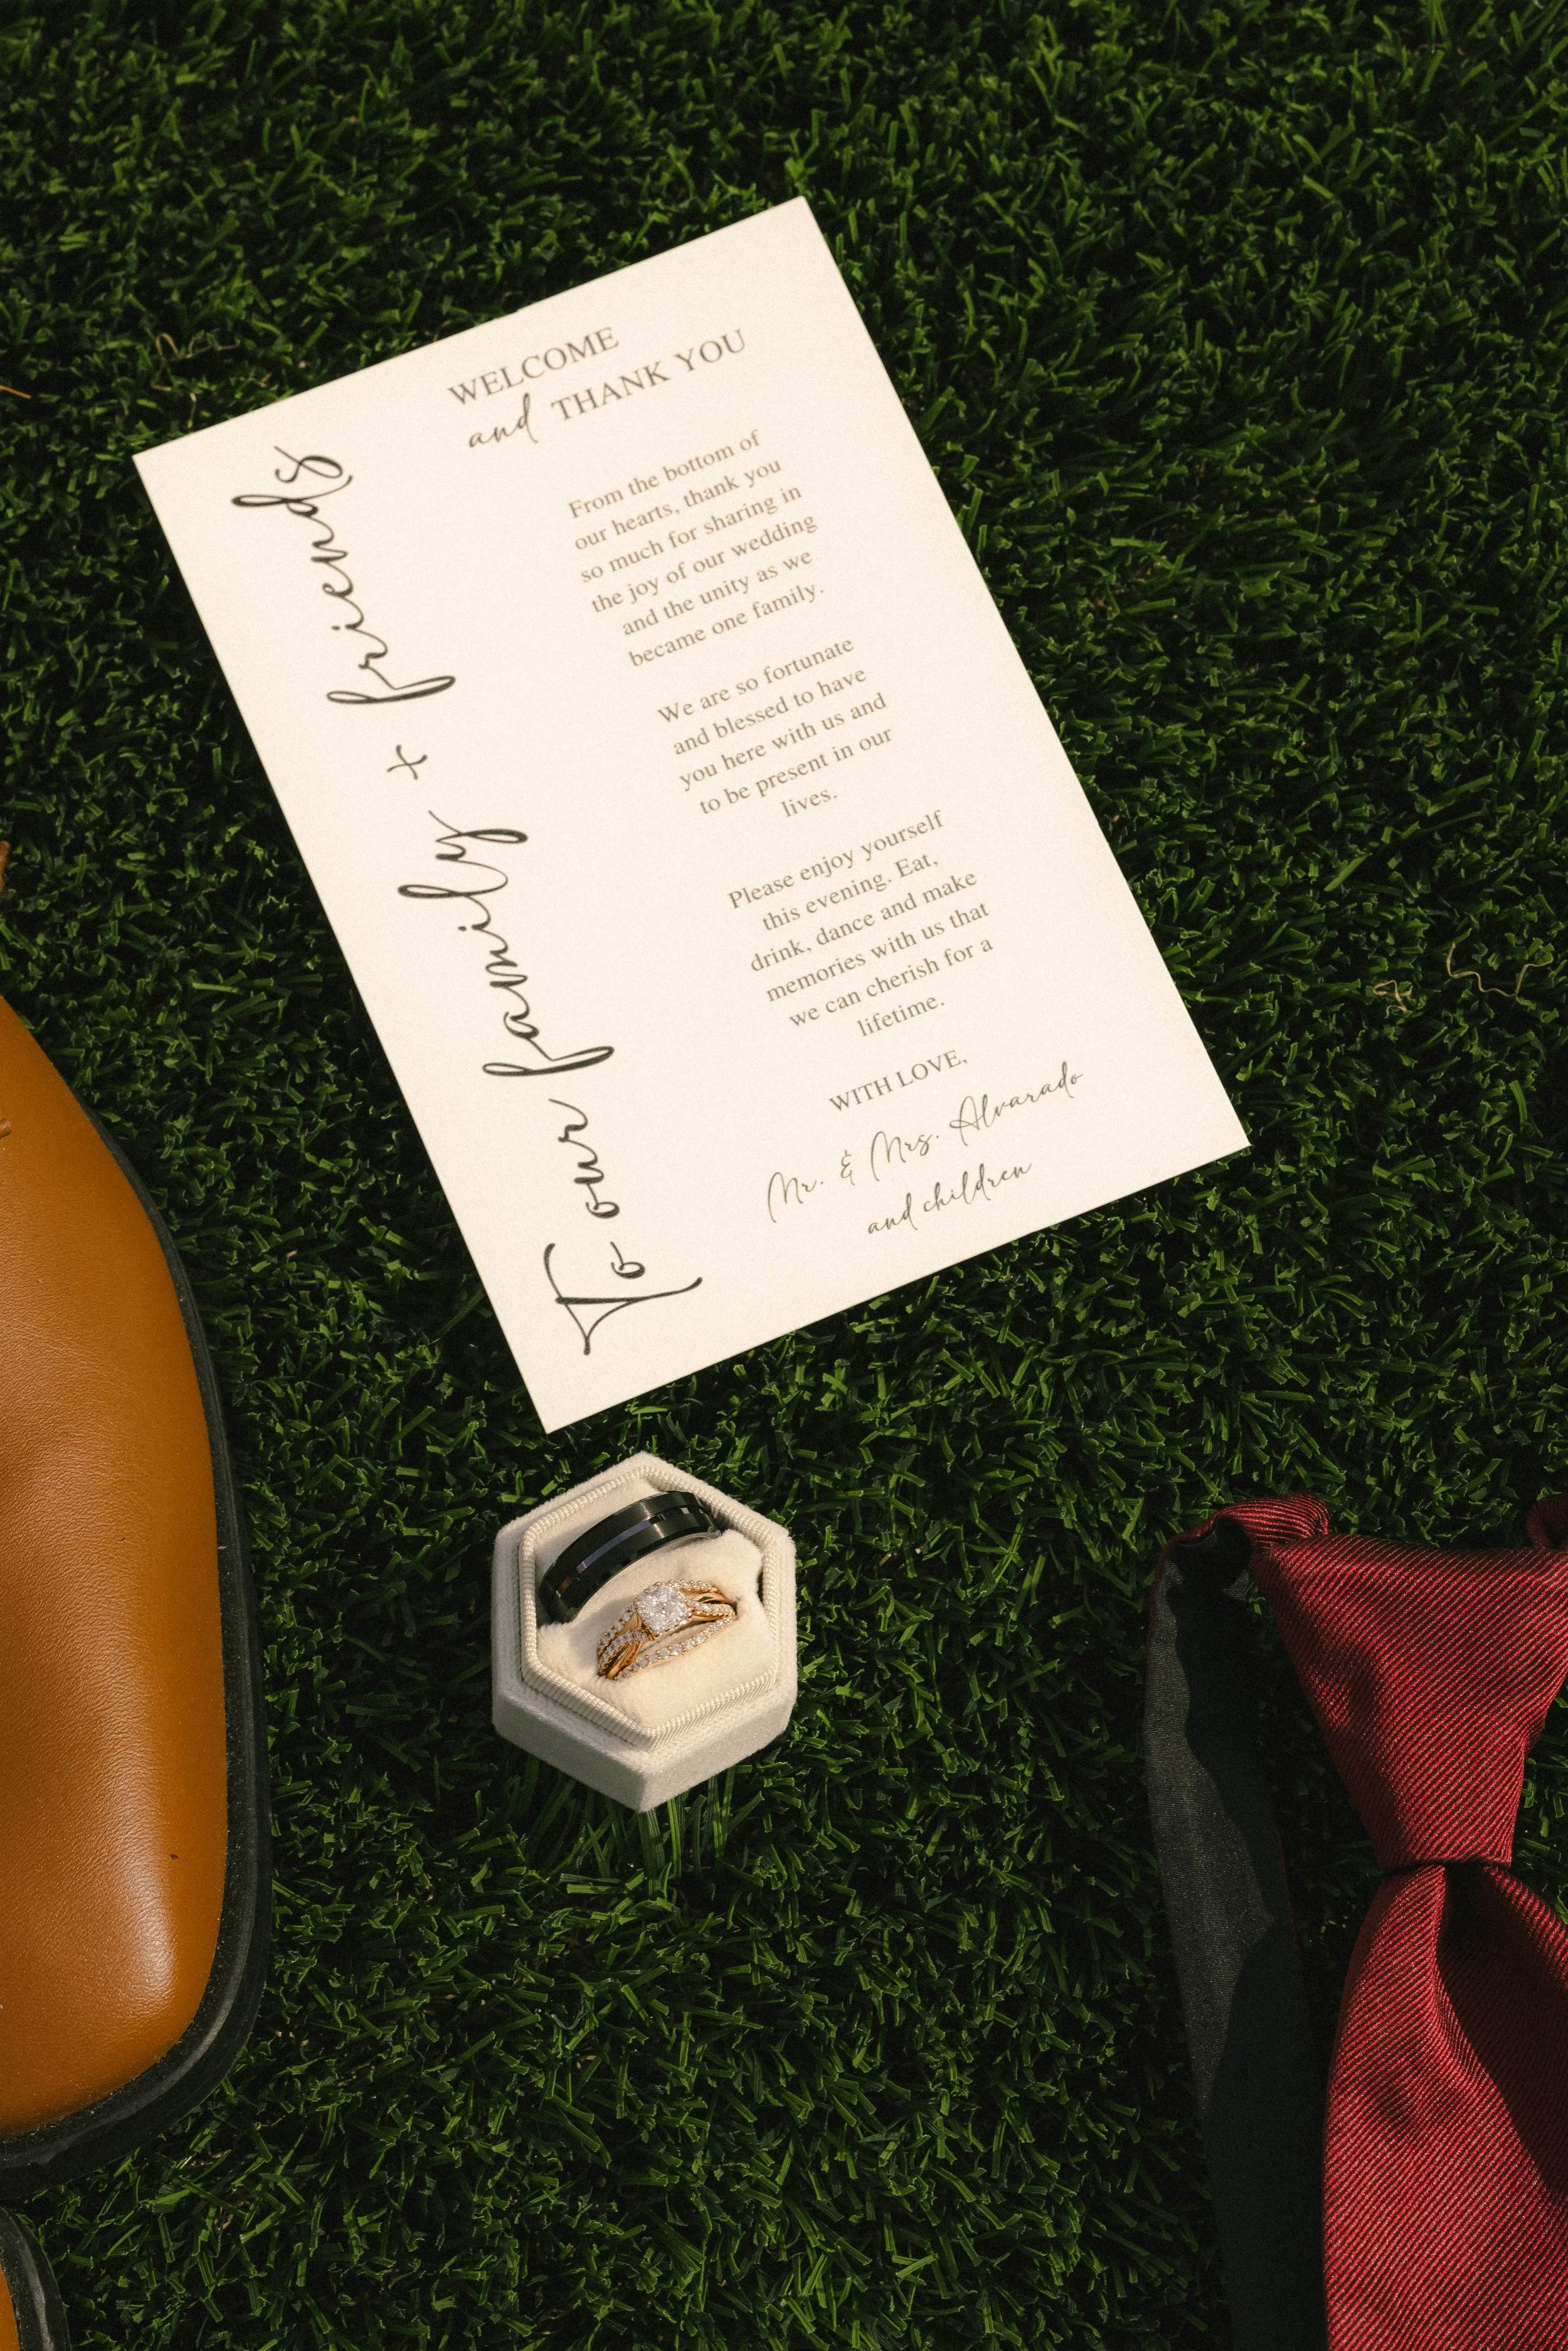 To our family + friends
WELCOME
and THANK YOU
From the bottom of
our hearts, thank you
so much for sharing in
the joy of our wedding
and the unity as we
became one family.
We are so fortunate
and blessed to have
you here with us and
to be present in our
lives.
Please enjoy yourself
this evening. Eat,
drink, dance and make
memories with us that
we can cherish for a
lifetime.
WITH LOVE,
Mr. & Mrs. Alvarado
and children